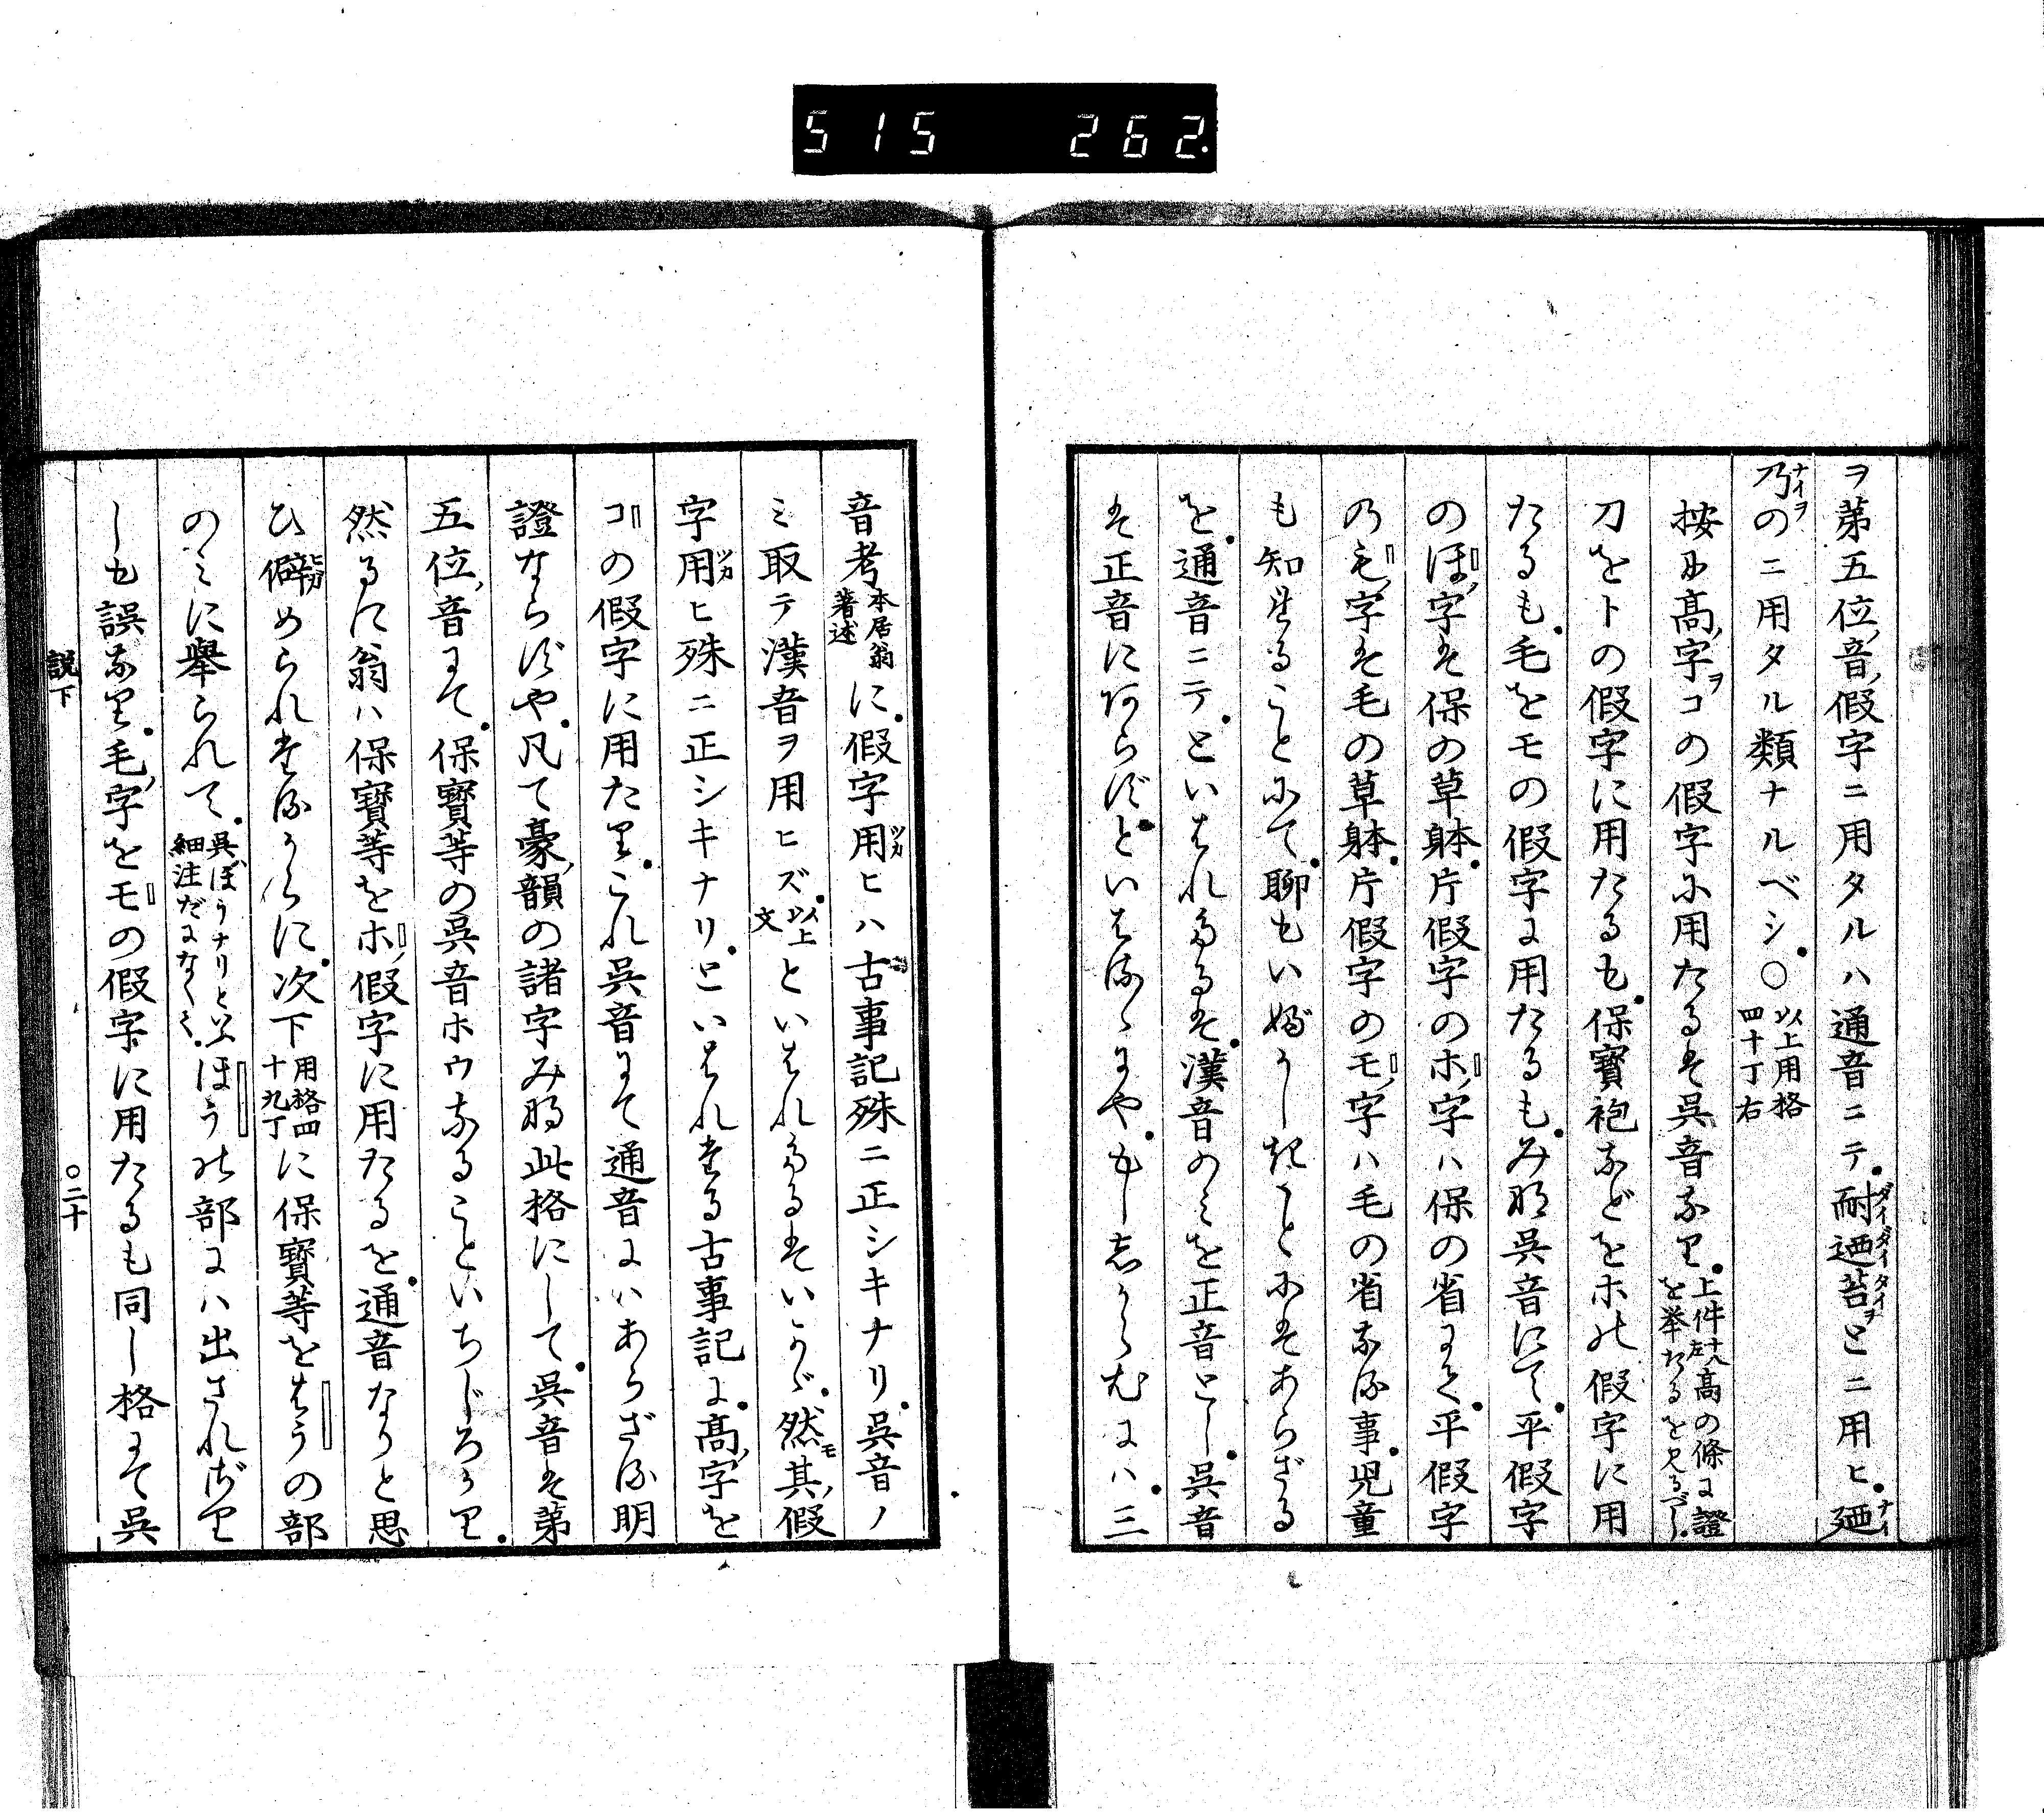 515 262.
ヲ第五位音假字ニ用タルハ通音ニテ耐迺苔とニ用ヒ廼
乃のニ用タル類ナルベシ○以上用格四十丁右
按に高字ヲコの假字に用たるは呉音なり上件十八左高の條に證を挙たるを見るべし
刀をトの假字に用たるも保寶袍などをホの假字に用
たるも毛をモの假字に用たるもみな呉音にて平假字
のほ字は保の草躰片假字のホ字ハ保の省にて平假字
のも字は毛の草躰片假字のモ字ハ毛の省なる事児童
も知れることにて聊もいぶかしきことにはあらざる
を通音ニテといはれたるは漢音のミを正音とし呉音
は正音にあらずといはるゝにやもししからむにハ三
音考本居翁著述に假字用ヒハ古事記殊ニ正シキナリ呉音ノ
ミ取テ漢音ヲ用ヒズ以上文といはれたるはいかゞ然モ其假
字用ヒ殊ニ正シキナリといはれたる古事記に高字を
コの假字に用たりこれ呉音にて通音にハあらざる明
證ならずや凡て豪韻の諸字みな此格にして呉音は第
五位音にて保寶等の呉音ホウなることいちじろかり
然るに翁ハ保寶等をホ假字に用たるを通音なりと思
ひ僻められたるからに次下用格四十九丁に保寶等をはうの部
のミに舉られて呉ぼうナリといふ細注だになくてほうの部にハ出されざり
しも誤なり毛字をモの假字に用たるも同し格にて呉
説下
〇二十